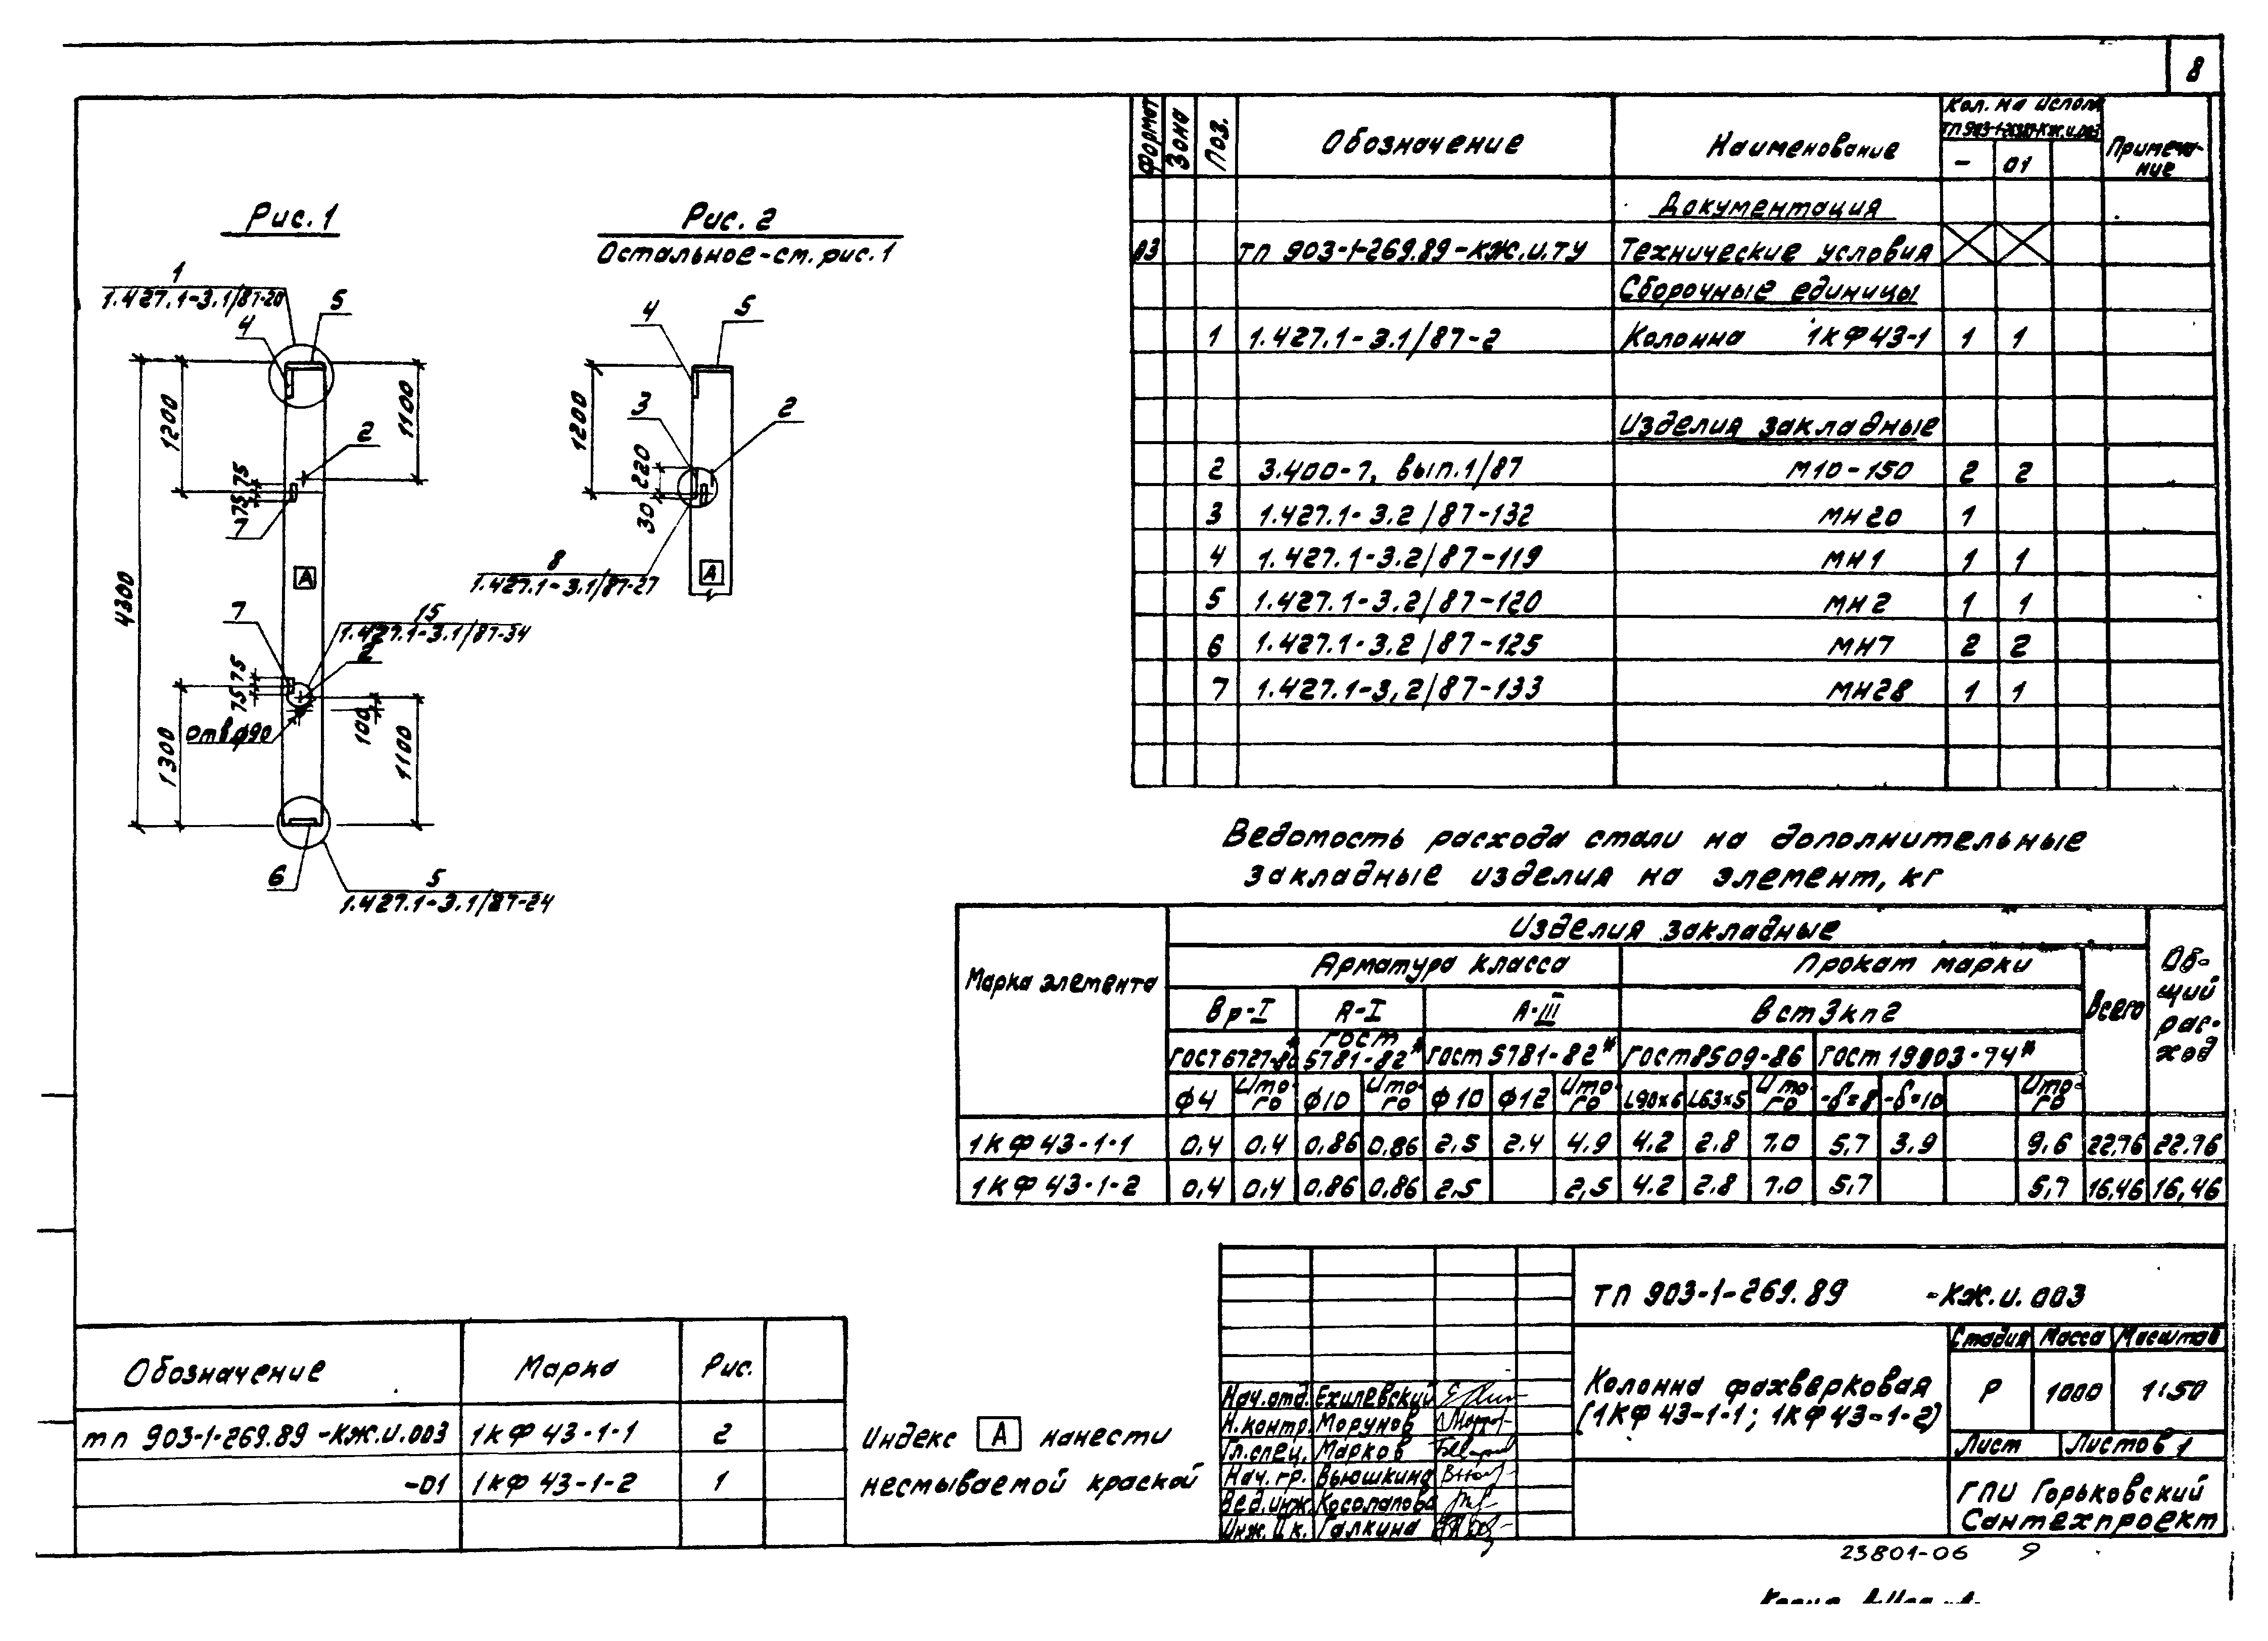 8
Рис. 1
1
1.427.1-3.1/87-20
5
4
1200
1100
2
75 75
7
4300
А
7
15
1.427.1-3.1/87-34
2
75 75
Отв.ф90
100
1300
1100
6
5
1.427.1-3.1/87-24
Рис. 2
Остальное-см. рис. 1
4
5
1200
3
2
220
30
8
1.427.1-3.1/87-27
А
Формат Зона Поз. Обозначение Наименование Кол. на испол. Примеча-ние
- 01
Документация
А3 ТП 903-1-269.89-КЖ.И.ТУ Технические условия
Сборочные единицы
1 1.427.1-3.1/87-2 Колонна 1КФ43-1 1 1
Изделия закладные
2 3.400-7, вып.1/87 М10-150 2 2
3 1.427.1-3.2/87-132 МН20 1
4 1.427.1-3.2/87-119 МН1 1 1
5 1.427.1-3.2/87-120 МН2 1 1
6 1.427.1-3.2/87-125 МН7 2 2
7 1.427.1-3.2/87-133 МН28 1 1
Ведомость расхода стали на дополнительные
закладные изделия на элемент, кг
Марка элемента Изделия закладные Об-щий рас-ход
Арматура класса Прокат марки Всего
Вр-I А-I А-III Вст3кп2
ГОСТ6727-80* ГОСТ 5781-82* ГОСТ 5781-82* ГОСТ8509-86 ГОСТ 19903-74*
ф4 Ито-го ф10 Ито-го ф10 ф12 Ито-го L90×6 L63×5 Ито-го -δ=8 -δ=10 Ито-го
1КФ43-1-1 0,4 0,4 0,86 0,86 2,5 2,4 4,9 4.2 2.8 7.0 5,7 3.9 9,6 22,76 22.76
1КФ43-1-2 0,4 0,4 0,86 0,86 2,5 2,5 4.2 2.8 7.0 5.7 5,7 16,46 16,46
Обозначение Марка Рис.
тп 903-1-269.89-КЖ.И.003 1КФ43-1-1 2
-01 1КФ43-1-2 1
Индекс А нанести
несмываемой краской
ТП 903-1-269.89 -КЖ.И.003
Нач.отд. Ехилевский
Н.контр. Морунов
Гл.спец. Марков
Нач.гр. Вьюшкина
Вед.инж. Косолапова
Инж.IIк. Галкина
Колонна фахверковая
(1КФ43-1-1; 1КФ43-1-2)
Стадия Масса Масштаб
Р 1000 1:50
Лист Листов 1
ГПИ Горьковский
Сантехпроект
23801-06 9